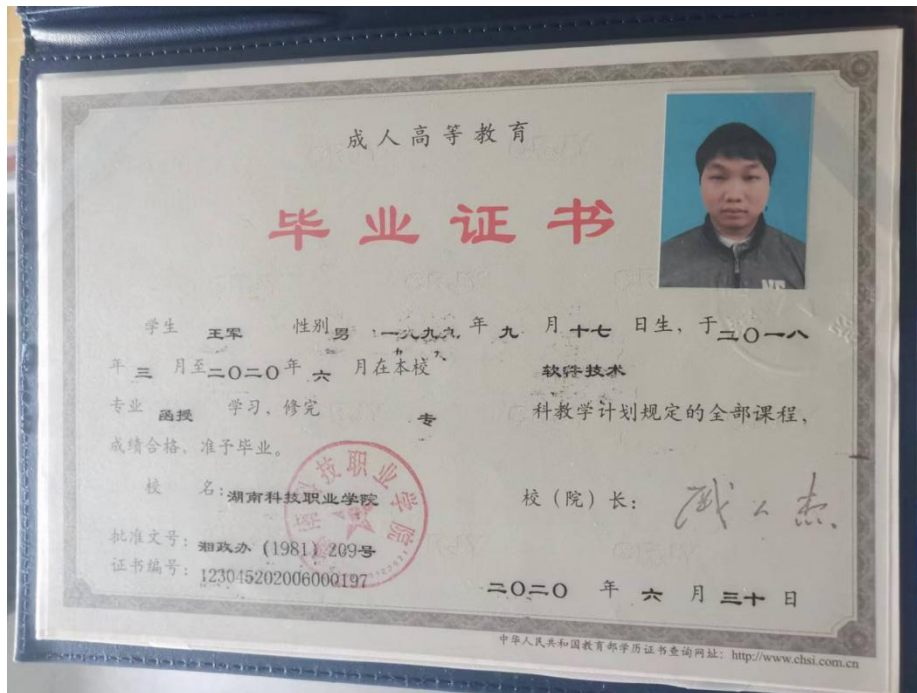 成人高等教育
毕业证书
学生 王军 性别 男 , 一九九九 年 九 月 十七 日生, 于 二〇一八
年 三 月至 二〇二〇 年 六 月在本校 软件技术
专业 函授 学习, 修完 专 科教学计划规定的全部课程,
成绩合格, 准予毕业。
校 名: 湖南科技职业学院 校(院)长:
批准文号: 湘政办 (1981) 209号
证书编号: 123045202006000197
二〇二〇 年 六 月 三十 日
中华人民共和国教育部学历证书查询网址: http://www.chsi.com.cn